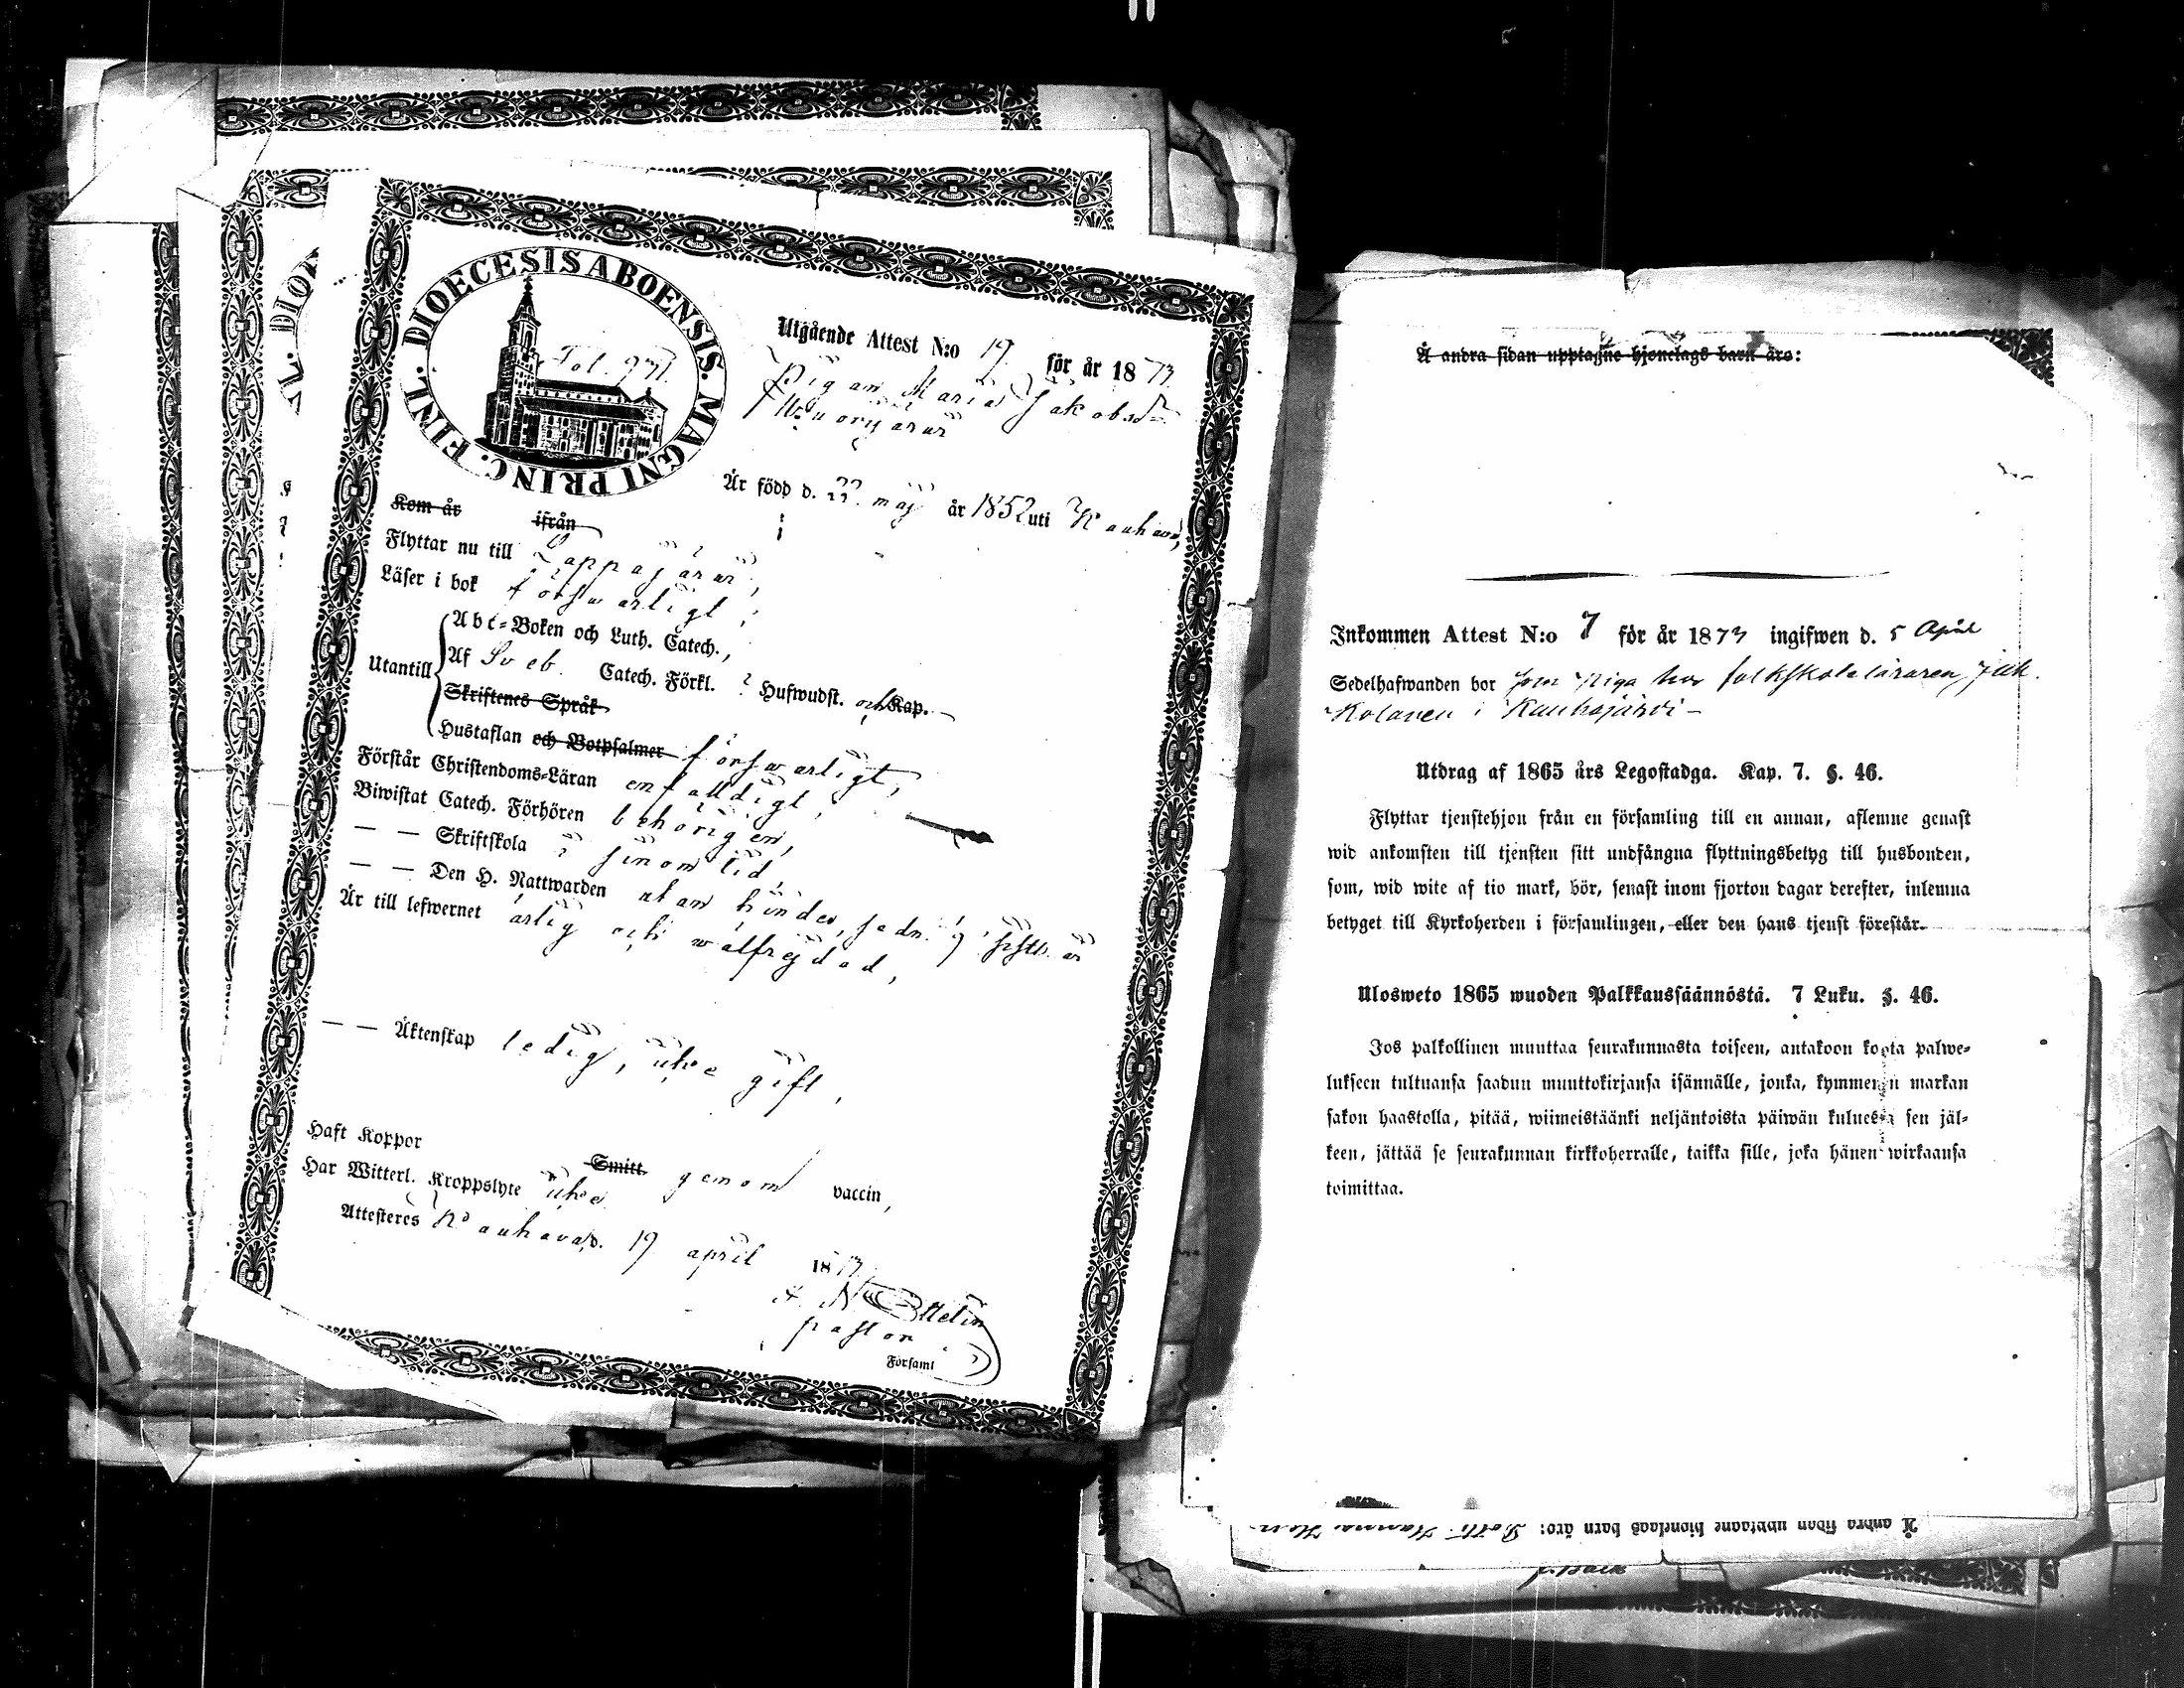 DIOECESIS ABOENSIS. MAGNI PRINC. FINL.
Fol. 971.
Utgående Attest N:o 19. för år 1873.
Pigan Maria Jakobsdr
Är född d. 22. maj år 1852 uti Kauhava,
Kom år ifrån
Flyttar nu till Lappajärvi,
Läser i bok försvarligt,
Utantill
Abc-Boken och Luth. Catech.,
Af Sveb. Catech. Förkl. Hufwudst. och Kap.
Skriftenes Språk
Hustaflan och Botpsalmer försvarligt,
Förstår Christendoms-Läran enfaldigt,
Biwistat Catech. Förhören behörigen,
— — Skriftskola i sinom tid,
— — Den H. Nattwarden utan hinder,
Är till lefwernet ärlig och wälfrejdad,
— — Äktenskap ledig, icke gift,
Haft Koppor Smitt. genom vaccin,
Har Witterl. Kroppslyte icke
Attesteres Kauhava d. 19 april 1873.
pastor
Församl
Å andra sidan upptagne hjonelags barn äro:
Inkommen Attest N:o 7 för år 1873 ingifwen d. 5 April
Sedelhafwanden bor som piga hos folkskoleläraren
Kolanen i Kauhajärvi –
Utdrag af 1865 års Legostadga. Kap. 7. §. 46.
Flyttar tjenstehjon från en församling till en annan, aflemne genast
wid ankomsten till tjensten sitt undfångna flyttningsbetyg till husbonden,
som, wid wite af tio mark, bör, senast inom fjorton dagar derefter, inlemna
betyget till Kyrkoherden i församlingen, eller den hans tjenst förestår.
Ulosweto 1865 wuoden Palkkaussäännöstä. 7 Luku. §. 46.
Jos palkollinen muuttaa seurakunnasta toiseen, antakoon kohta palwe-
lukseen tultuansa saadun muuttokirjansa isännälle, jonka, kymmenen markan
sakon haastolla, pitää, wiimeistäänki neljäntoista päiwän kuluessa sen jäl-
keen, jättää se seurakunnan kirkkoherralle, taikka sille, joka hänen wirkaansa
toimittaa.
Å andra sidan upptagne hjonelags barn äro: